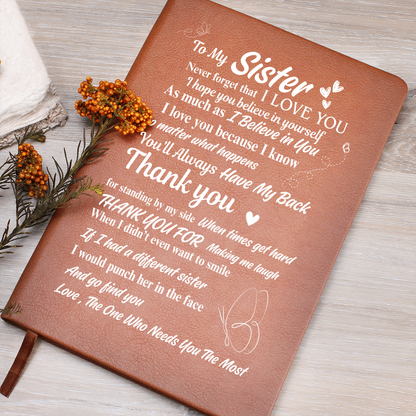 To My Sister
Never forget that I LOVE YOU
I hope you believe in yourself
As much as I Believe in You
I love you because I know
No matter what happens
You'll Always Have My Back
Thank you
for standing by my side When times get hard
THANK YOU FOR Making me laugh
When I didn't even want to smile
If I had a different sister
I would punch her in the face
And go find you
Love, The One Who Needs You The Most